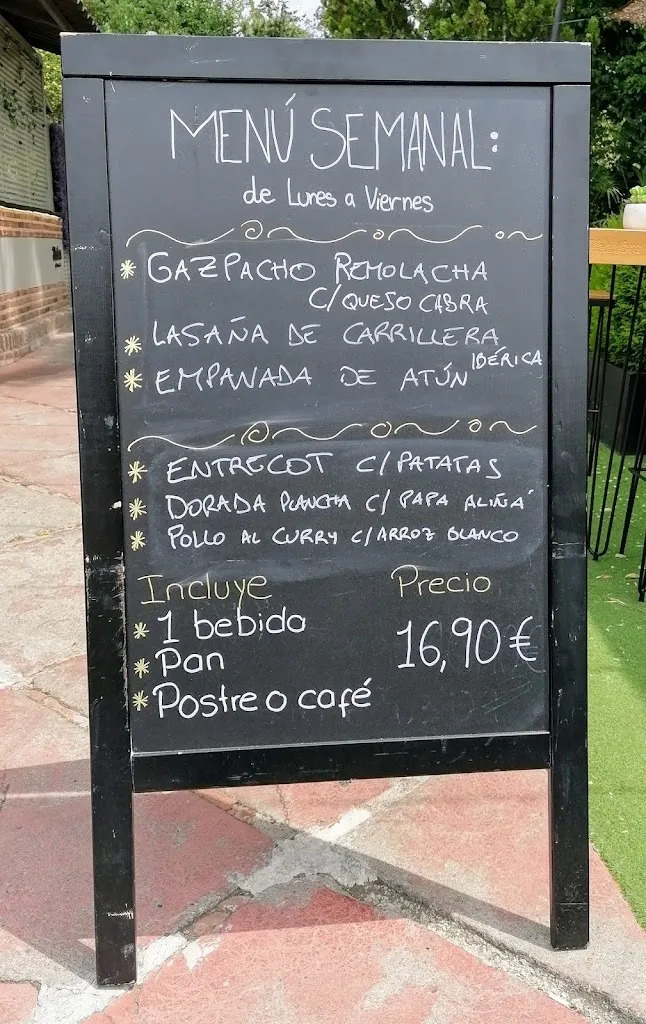 MENÚ SEMANAL:
de Lunes a Viernes
* GAZPACHO REMOLACHA
C/QUESO CABRA
* LASAÑA DE CARRILLERA
IBÉRICA
* EMPANADA DE ATÚN
* ENTRECOT C/PATATAS
* DORADA PLANCHA C/ PAPA ALIÑÁ
* POLLO AL CURRY C/ARROZ BLANCO
Incluye Precio
* 1 bebida
16,90 €
* Pan
* Postre o café